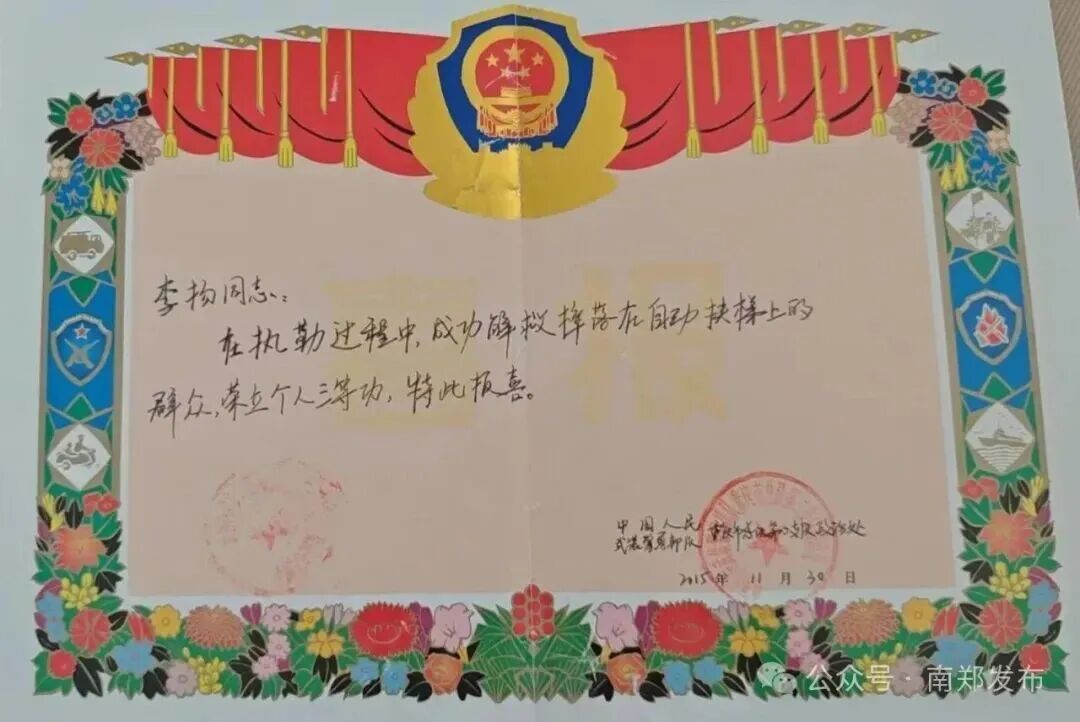 喜报
李扬同志：
在执勤过程中，成功解救掉落在自动扶梯上的
群众，荣立个人三等功，特此报喜。
中国人民
武装警察部队 重庆市总队第 支队政治处
2015年11月30日
公众号·南郑发布